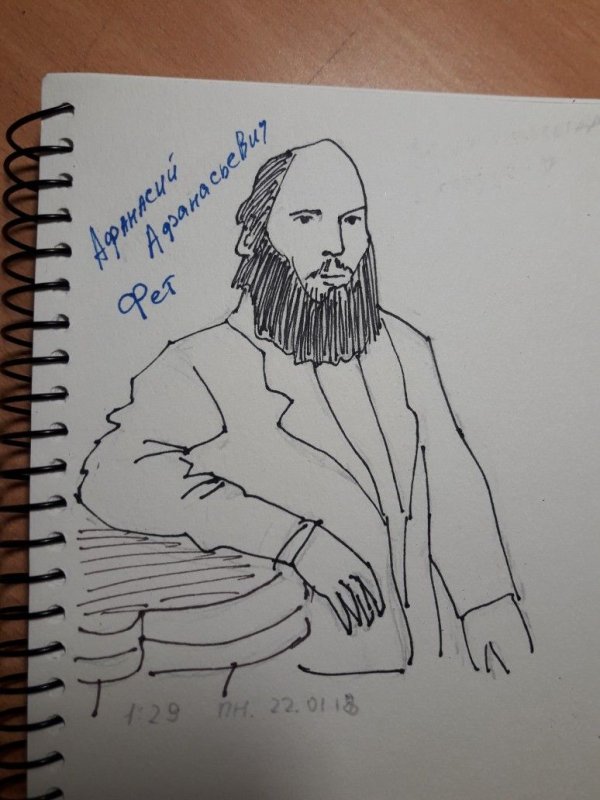 Афанасий
Афанасьевич
Фет
1:29 ПН. 22.01.18